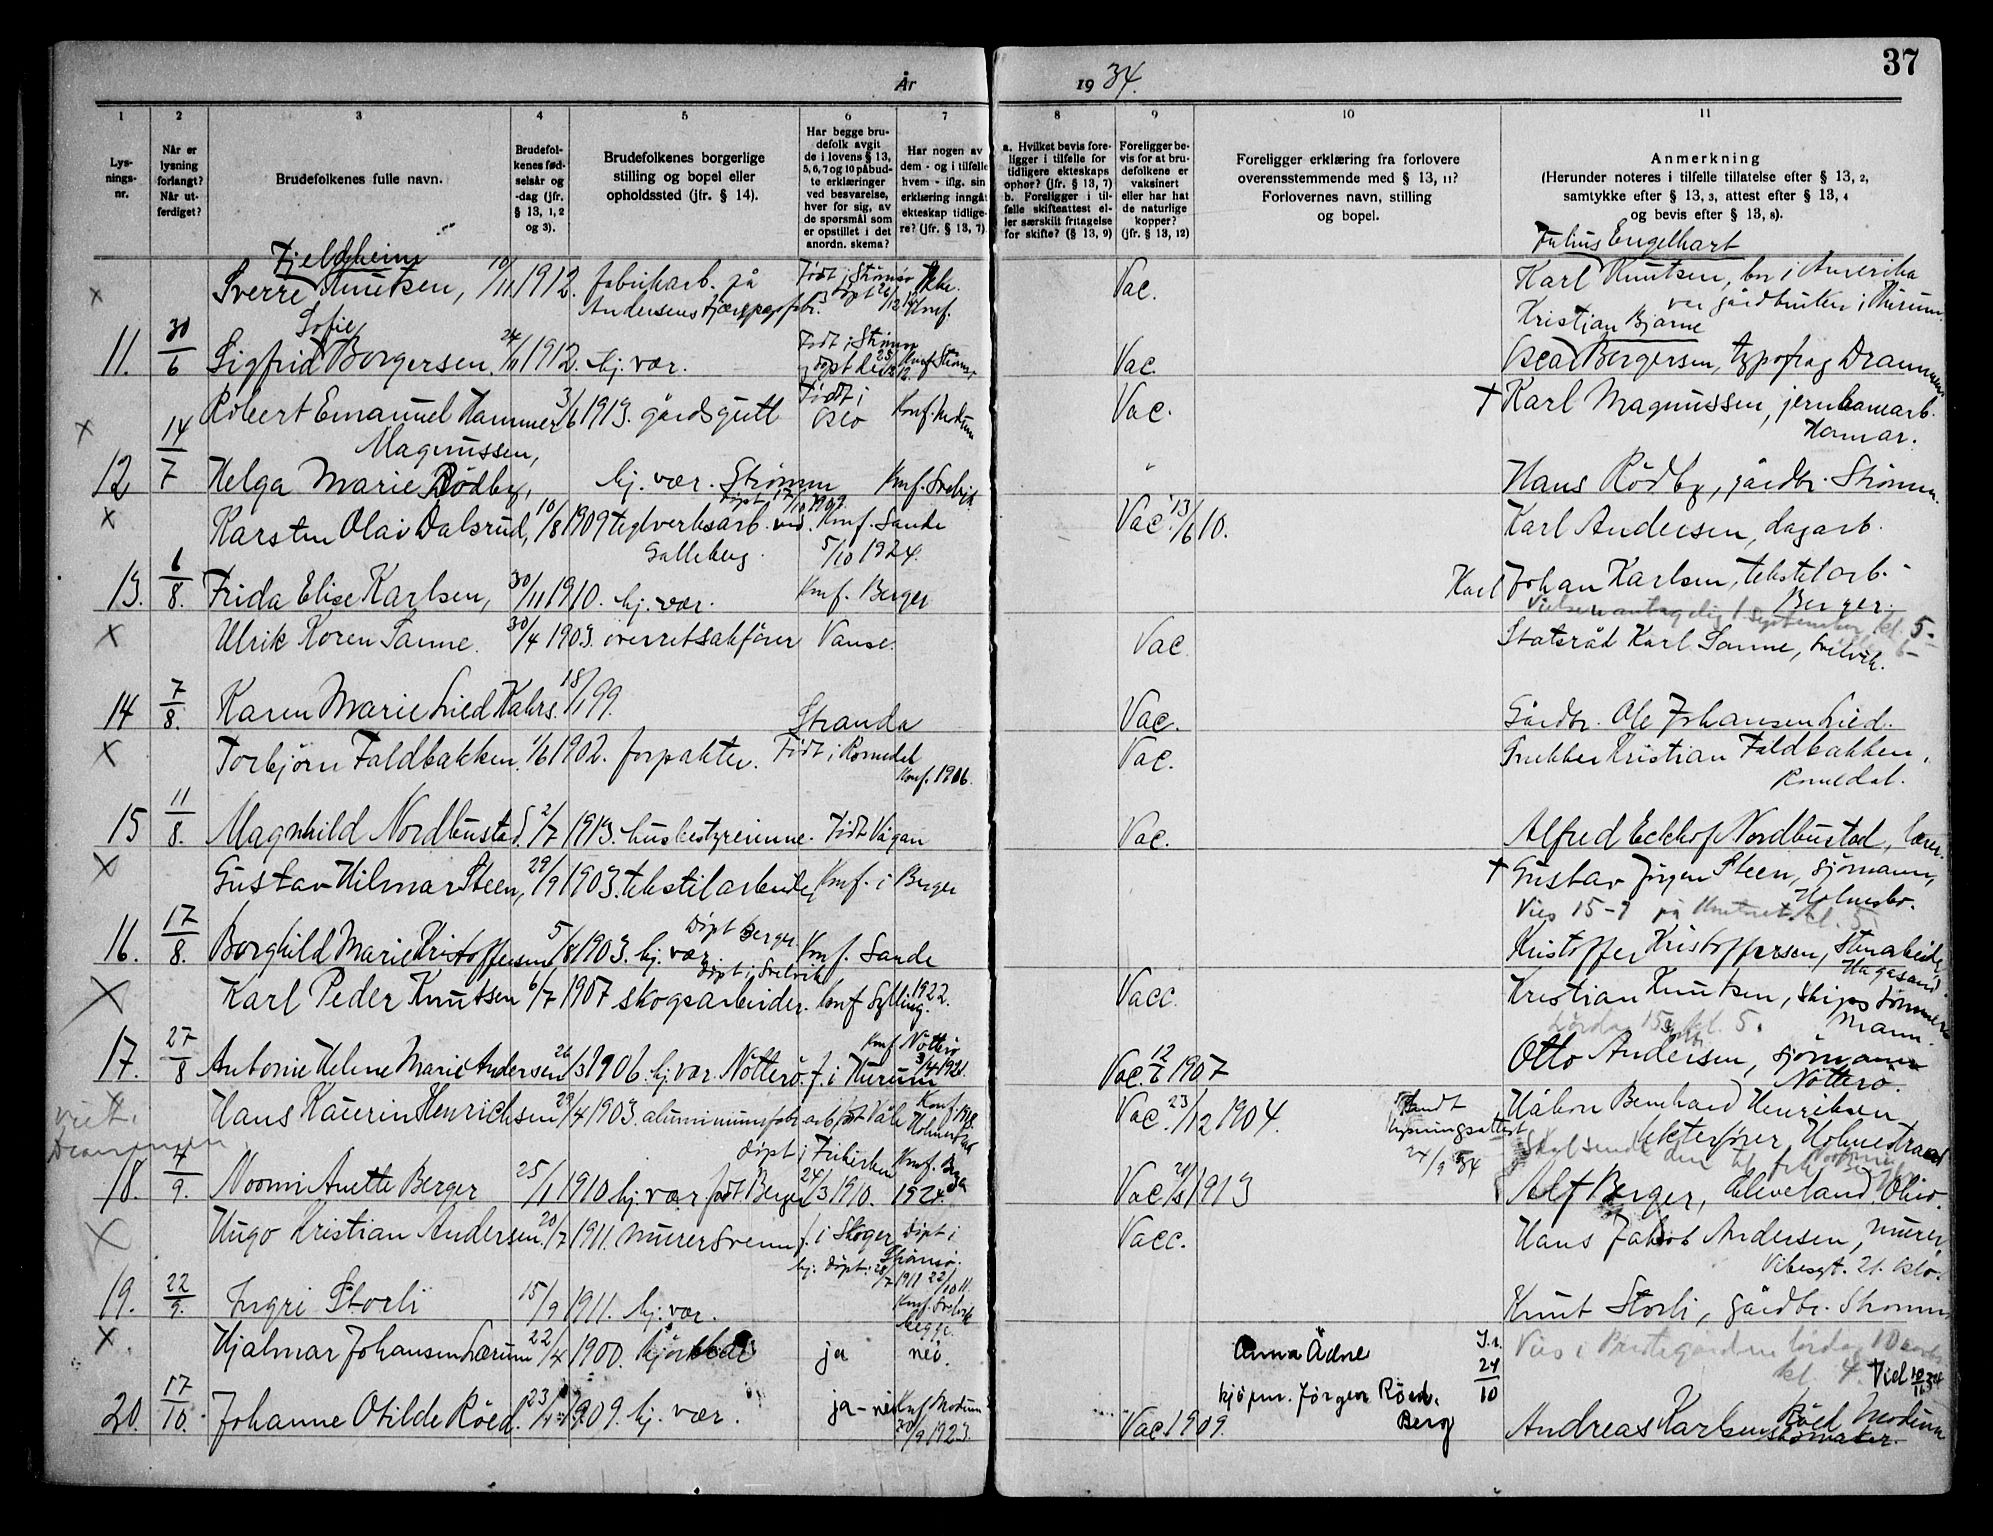 37
År 1934.
1 2 3 4 5 6 7 8 9 10 11
Lysningsnr.
Når er lysning forlangt? Når utferdiget?
Brudefolkenes fulle navn.
Brudefolkenes fødselsår og -dag (jfr. § 13, 1,2 og 3).
Brudefolkenes borgerlige stilling og bopel eller opholdssted (jfr. § 14).
Har begge brudefolk avgit de i lovens § 13, 5, 6, 7 og 10 påbudte erklæringer ved besvarelse, hver for sig, av de spørsmål som er opstillet i det anordn. skema?
Har nogen av dem - og i tilfelle hvem - iflg. sin erklæring inngåt ekteskap tidligere? (jfr. § 13, 7)
a. Hvilket bevis foreligger i tilfelle for tidligere ekteskaps ophør? (jfr. § 13, 7) b. Foreligger i tilfelle skifteattest eller særskilt fritagelse for skifte? (§ 13, 9)
Foreligger bevis for at brudefolkene er vaksinert eller har hat de naturlige kopper? (jfr. § 13, 12)
Foreligger erklæring fra forlovere overensstemmende med § 13, 11? Forlovernes navn, stilling og bopel.
Anmerkning (Herunder noteres i tilfelle tillatelse efter § 13, 2, samtykke efter § 13, 3, attest efter § 13, 4 og bevis efter § 13, 8).
Fjeldheim Julius Engelhart
x Sverre Knutsen, 10/11 1912. fabrikarb. på Født i Strømsø Vac. Karl Knutsen, bor i Amerika
Andersens døpt 26/12 Konf. var gårdbruker i Hurum.
Sofie Kristian Bjarne
11. 30/6 Sigfrid Borgersen 24/11 1912. hj. vær. Født i Strømm døpt Konf. Strøms. Vac. Oscar Bergersen, typograf Drammen
x Robert Emanuel Hammer 3/6 1913. gårdsgutt Født i Oslo Konf. Modum Vac. † Karl Magnussen, jernbanearb.
14/7 Magnussen, Hamar.
12 Helga Marie Rødby, hj. vær. Strømm Konf. Svelvik " Hans Rødby, gårdbr. Strømm.
døpt 17/10 1909.
x Karsten Olai Dalsrud, 10/8 1909 teglverksarb. ved Konf. Sande Vac. 13/6 10. Karl Andersen, dagarb.
Galleberg. 5/10 1924.
13. 6/8. Frida Elise Karlsen, 30/11 1910. hj. vær. Konf. Berger Karl Johan Karlsen, tekstilarb. Berger.
Vielsen antagelig 1 september kl. 5-
x Ulrik Koren Sanne. 30/4 1903. overretsakfører Vanse. Vac Statsråd Karl Sanne, Svelvik.
14 7/8. Karen Marie Lied Kahrs. 18/1 99. Stranda Vac. Gårdbr. Ole Johansen Lied.
x Torbjørn Faldbakken. 1/6 1902. forpakter. Født i Romedal Vac. Snekker Kristian Faldbakken,
Konf. 1916. Romedal.
15 11/8. Magnhild Nordbustad. 2/7 1913. husbestyrerinne. Født Vågan Vac. Alfred Eckhof Nordbustad, lærer.
x Gustav Hilmar Steen, 29/9 1903. tekstilarbeider Konf. i Berger † Gustav Jørgen Steen, sjømann,
Holmsbo.
Døpt Berger. Vies 15-9 på kl. 5
16. 17/8. Borghild Marie Kristoffersen 5/8 1903. hj. vær. Konf. Sande Kristoffer Kristoffersen, Stenarbeider
døpt i Svelvik Hagasand.
x Karl Peder Knutsen 6/7 1907 skogsarbeider. konf Sylling. 1922. Vacc. Kristian Knutsen, skipstømmermann.
Lørdag 15 sept. kl. 5.
17. 27/8 Antonie Helene Marie Andersen 26/3 1906. hj. vær. Nøtterø. f. i Hurum Konf Nøtterø 3/4 1921. Vac. 12/6 1907 Otto Andersen, sjømann
Nøtterø.
x Hans Kaurin Henrichsen 29/4 1903. aluminiumsfabr arb født Våle Konf. 1918. Holmestrand Vac. 23/12 1904. Sandt lysningsattest 24/9 34 Håkon Bernhard Henriksen
viet i Drammen ekterfører Holmestrand
døpt i Fiskerkn. Konf. Berger
18. 4/9. Noomi Anette Berger 25/1 1910 hj. vær. født Berger 24/3 1910. 1924. Vac 1913 Alf Berger, Cleveland, Ohio.
x Hugo Kristian Andersen. 20/7 1911. Murersvenn f. i Skoger Døpt i Strømsø. Vacc. Hans Jakob Andersen, murer,
Vibesgt. 21. Oslo.
19. 22/9. Ingri Storli 15/9 1911. hj. vær. Konf. Svelvik begge. Knut Storli, gårdbr. Strømm
x Hjalmar Johansen Lærum 22/4 1900. ja nei. Anna Ådne Vies i Prestegården lørdag 10 novbr.
24/10 kl. 4. Vid 10/11 34
20. 17/10. Johanne Otilde Røed. 23/ 1909. hj. vær. ja - nei Konf Modum 30/9 1923. Vac 1909. kjøpm. Jørgen Røed. Berg Andreas Karlsen Røed Modum
skomaker.